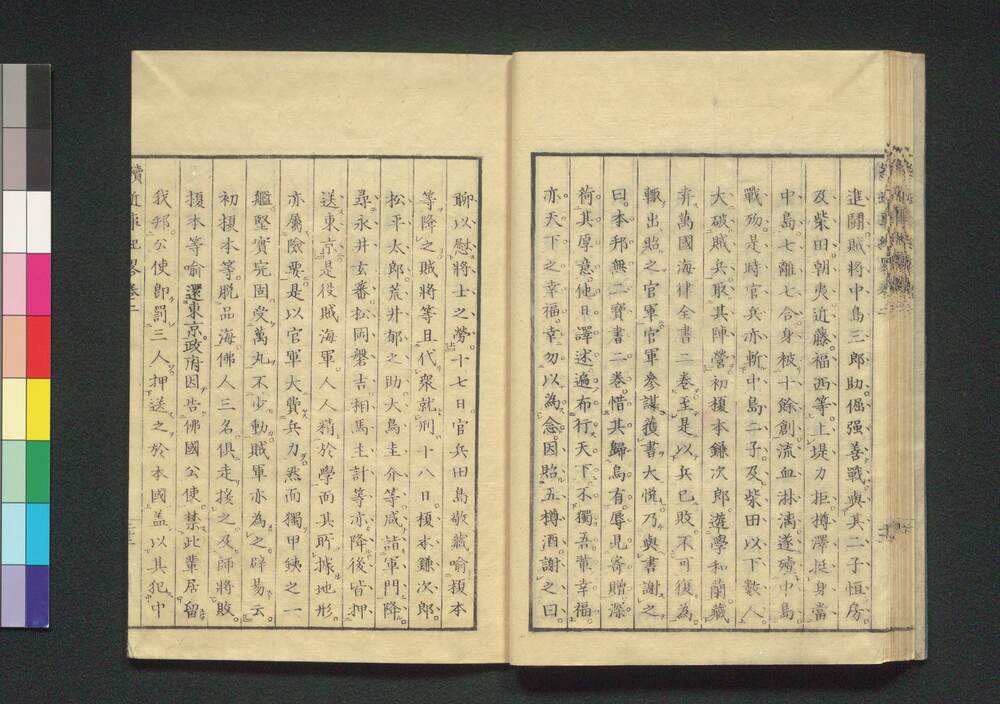 進鬪賊將中島三郎助倔强善戰與其二子恒房
及柴田朝夷近藤福西等上堤力拒樽澤挺身當
中島七離七合身被十餘創流血淋漓遂殪中島
戰殁是時官兵亦斬中島二子及柴田以下數人
大破賊兵取其陣營初榎本鎌次郎遊學和蘭藏
弆萬國海律全書二卷至是以兵已敗不可復為
輙出貽之官軍官軍參謀獲書大悅乃與書謝之
曰本邦無二寶書二卷惜其歸烏有辱見寄贈深
荷其厚意他日譯述遍布行天下不獨吾輩幸福
亦天下之幸福幸勿以為念因貽五樽酒謝之曰
聊以慰將士之勞十七日官兵田島敬藏喻榎本
等降之賊將等且代衆就刑十八日榎本鎌次郎
松平太郎荒井郁之助大鳥圭介等咸詣軍門降
尋永井玄番松岡磐吉相馬主計等亦降後皆押
送東京是役賊海軍人人精於學而其所據地形
亦屬險要是以官軍大費兵力然而獨甲鐵之一
艦堅實完固受萬丸不少動賊軍亦為之辟易云
初榎本等脫品海佛人三名俱走援之及師將敗
榎本等喻還東京政府因告佛國公使禁此輩居留
我邦公使卽罰三人押送之於本國盖以其犯中
續近事紀畧卷二